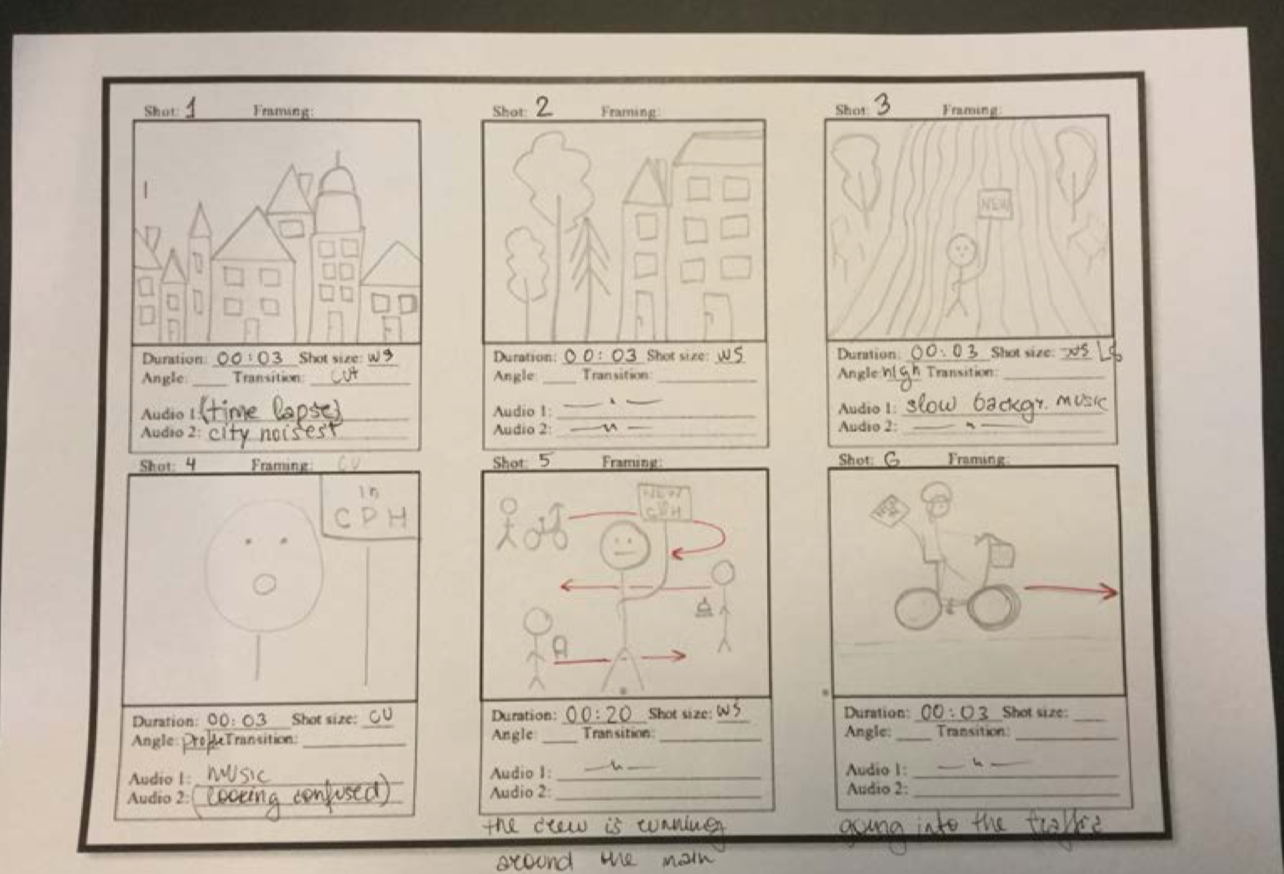 Shot: 1 Framing:
Duration: 00:03 Shot size: WS
Angle: Transition: cut
Audio 1: (time lapse)
Audio 2: city noisest
Shot: 2 Framing:
Duration: 00:03 Shot size: WS
Angle: Transition:
Audio 1: — " —
Audio 2: — " —
Shot: 3 Framing:
NEW
Duration: 00:03 Shot size: LS
Angle: high Transition:
Audio 1: slow backgr. music
Audio 2: — " —
Shot: 4 Framing: CU
In
CPH
Duration: 00:03 Shot size: CU
Angle: profile Transition:
Audio 1: music
Audio 2: (looking confused)
Shot: 5 Framing:
NEW
CPH
Duration: 00:20 Shot size: WS
Angle: Transition:
Audio 1: — " —
Audio 2:
the crew is running
around the main
Shot: 6 Framing:
Duration: 00:03 Shot size:
Angle: Transition:
Audio 1: — " —
Audio 2:
going into the traffic